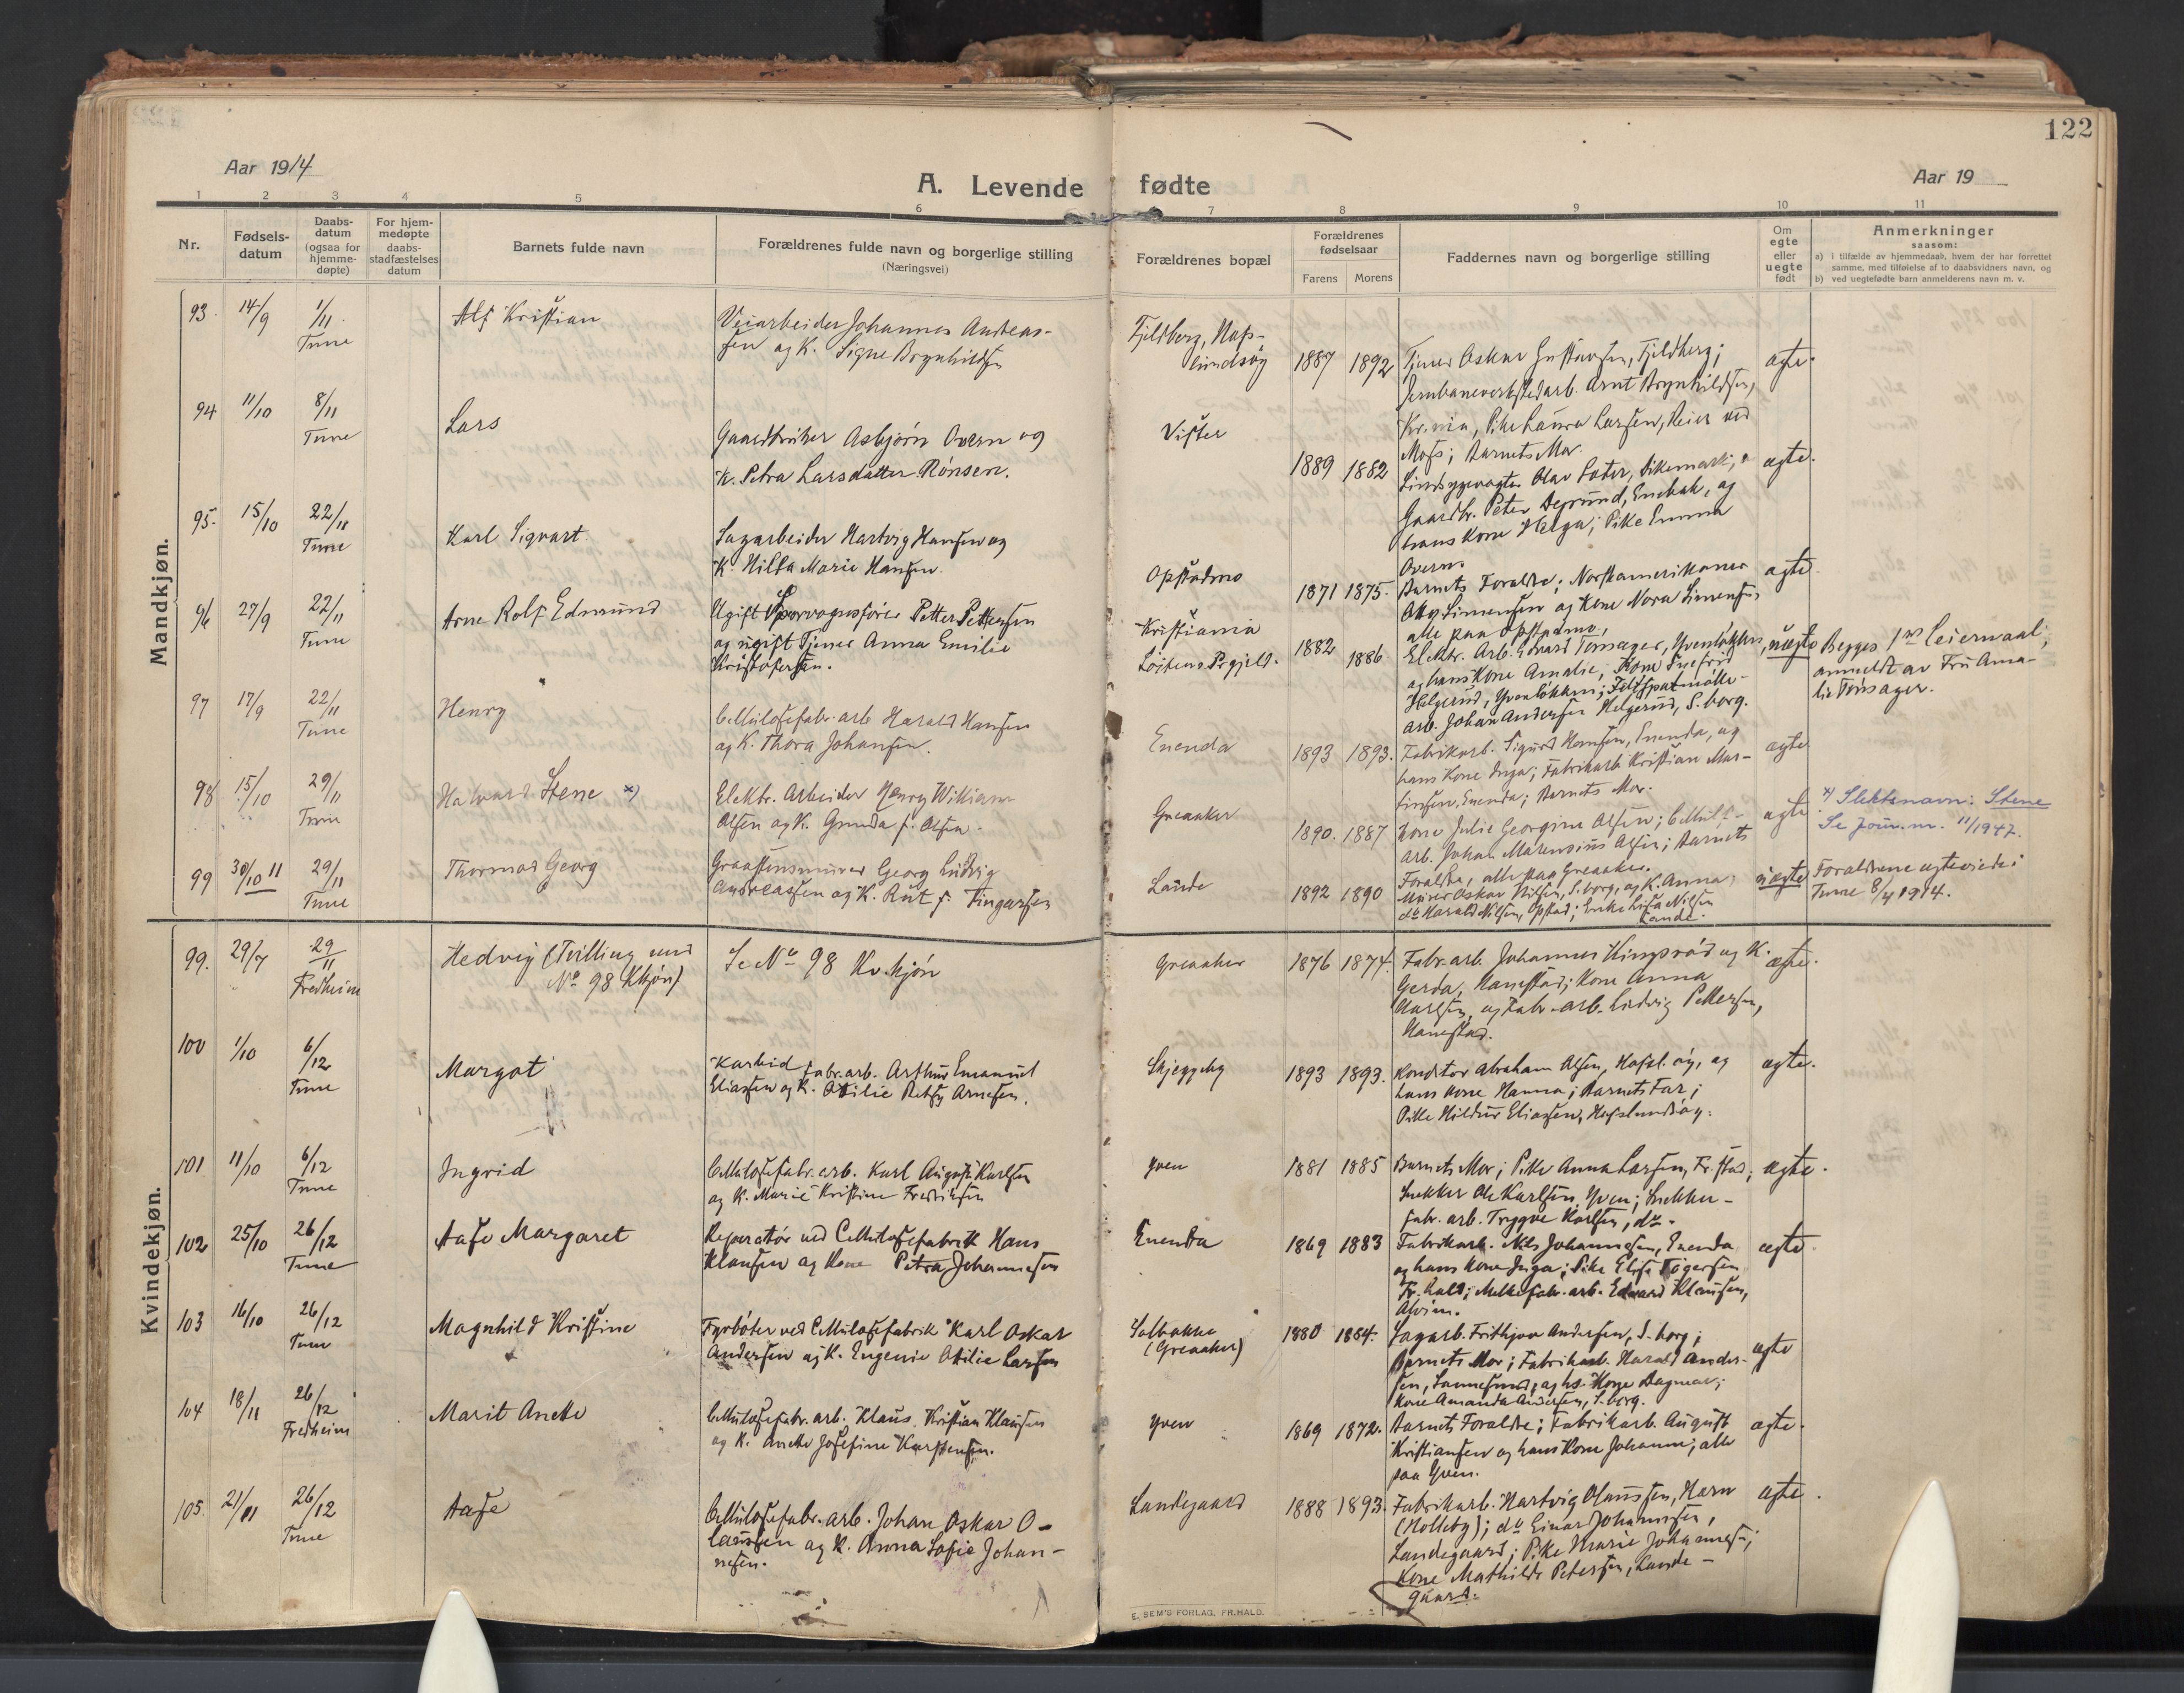 122
Aar 1914
A. Levende fødte
Aar 19
1 2 3 4 5 6 7 8 9 10 11
Nr.
Fødsels-
datum
Daabs-
datum
(ogsaa for
hjemme-
døpte)
For hjem-
medøpte
daabs-
stadfæstelses
datum
Barnets fulde navn
Forældrenes fulde navn og borgerlige stilling
(Næringsvei)
Forældrenes bopæl
Forældrenes
fødselsaar
Farens Morens
Faddernes navn og borgerlige stilling
Om
egte
eller
uegte
født
Anmerkninger
saasom:
a) i tilfælde av hjemmedaab, hvem der har forrettet
samme, med tilføielse af to daabsvidners navn, og
b) ved uegtefødte barn anmelderens navn m. v.
Mandkjøn.
93. 14/9 1/11
Tune
Alf Kristian
Veiarbeider Johannes Andreas-
sen og K. Signe Brynhildsen
Fjeldberg, Hafs-
lundsøy
1887 1892
Tjener Oskar Gustavsen, Fjeldberg;
Jernbaneverkstedarb. Arnt Brynhildsen,
Kr.nia, Pike Laura Larsen, Reier ved
Moss; Barnets Mor.
egte.
94 11/10 8/11
Tune
Lars
Gaardbruker Asbjørn Overn og
K. Petra Larsdatter Rønsen.
Vister
1889 1882
Sindsygevogter Olav Sæter, Dikemark;
Gaardbr. Peter Degrund, Enebak, og
hans Kone Helga; Pike Emma
Overn.
egte.
95. 15/10 22/11
Tune
Karl Sigvart
Sagarbeider Hartvig Hansen og
K. Hilda Marie Hansen.
Opstadmo
1871 1875.
Barnets Forældre; Norskamerikaner
Simensen og Kone Nora Simensen,
alle paa Opstadmo,
egte.
96 27/9 22/11
Tune
Arne Rolf Edmund
Ugift Sporvognsfører Petter Pettersen
og ugift Tjener Anna Emilie
Kristofersen.
Kristiania
Løitens Prgjeld.
1882 1886
Elektr. Arb. Edvard Tonsager, Yvenløkken,
og hans Kone Amalie; Kone Syefrid
Helgerud, Yvenløkken; Feltspatmølle-
arb. Johan Andersen Helgerud, S.borg.
uegte
Begges 1ste Leiermaal,
anmeldt av Fru Ama-
lie Tonsager.
97 17/9 22/11
Tune
Henry
Cellulosefabr. arb Harald Hansen
og K. Thora Johansen.
Enenda
1893 1893.
Fabrikarb. Sigurd Hansen, Enenda, og
hans Kone Inga; Fabrikarb Kristian Mar-
tinsen, Enenda; Barnets Mor.
egte
98 15/10 29/11
Tune
Halvard Stene x)
Elektr. Arbeider Henry William
Olsen og K. Gunda f. Olsen.
Greaaker
1890. 1887
Kone Julie Georgine Olsen; Cellul.-
arb. Johan Marensius Olsen; Barnets
Forældre, alle paa Greaaker.
egte
x) Slektsnavn: Stene
Se Jour. nr. 11/1947.
99 30/10 11 29/11
Tune
Thormod Georg
Graastensmurer Georg Ludvig
Andreassen og K. Rut f. Tingarsen
Lande
1892 1890
Murer Oskar Nilsen, S.borg, og K. Anna,
do Harald Nilsen, Opstad; Enke Lisa Nilsen
Lande.
uegte
Forældrene egteviede i
Tune 8/4 1914.
Kvindekjøn.
99. 29/7 29/11
Fredheim
Hedvig (Tvilling med
No 98 Kkjøn)
Se No 98 Kv.kjøn
Greaaker
1876 1874.
Fabr. arb. Johannes Kingsrød og K.
Gerda, Hanestad; Kone Anna
Karlsen, og Fabr. arb. Ludvig Pettersen,
Hanestad.
egte.
100 1/10 6/12
Tune
Margot
Karbid fabr. arb. Arthur Emanuel
Eliassen og K. Otilie Betsy Arnesen.
Skjeggeby
1893 1893.
Konditor Abraham Olsen, Hafsl.øy, og
hans Kone Hanna; Barnets Far;
Pike Hildur Eliassen, Hafslundsøy.
egte.
101 11/10 6/12
Tune
Ingrid
Cellulosefabr. arb. Karl August Karlsen
og K. Marie Kristine Fredriksen
Yven
1881 1885
Barnets Mor; Pike Anna Larsen, Fr.stad;
Snekker Ole Karlsen, Yven; Snekker-
fabr. arb. Trygve Karlsen, do.
egte.
102 25/10 26/12
Tune
Aase Margaret
Reparatør ved Cellulosefabrik Hans
Klausen og Kone Petra Johannesen
Enenda
1869 1883
Fabrikarb. Nils Johannesen, Enenda
og hans Kone Inga; Pike Elise Tøgersen
Fr.hald; Melkefabr. arb. Edvard Klausen,
Alvim.
egte
103 16/10 26/12
Tune
Magnhild Kristine
Fyrbøter ved Cellulosefabrik Karl Oskar
Andersen og K. Eugenie Otilie Larsen
Solbakke
(Greaaker)
1880 1884.
Sagarb. Frithjov Andersen, S.borg;
Barnets Mor; Fabrikarb. Harald Ander-
sen, Sannesund, og hs. Kone Dagmar;
Kone Amanda Andersen, S.borg.
egte
104 18/11 26/12
Fredheim
Marit Anette
Cellulosefabr. arb. Klaus Kristian Klausen
og K. Anette Josefine Karstensen.
Yven
1869 1872.
Barnets Forældre; Fabrikarb. August
Kristiansen og hans Kone Johanne; alle
paa Yven.
egte.
105. 21/11 26/12
Tune
Aase
Cellulosefabr. arb. Johan Oskar O-
laussen og K. Anna Sofie Johan-
nesen.
Landegaard
1888 1893.
Fabrikarb. Hartvig Olaussen, Hern
(Rolleby); do Einar Johannesen,
Landegaard; Pike Marie Johannesen;
Kone Mathilde Petersen, Lande-
gaard.
egte.
E. SEM'S FORLAG, FR.HALD.